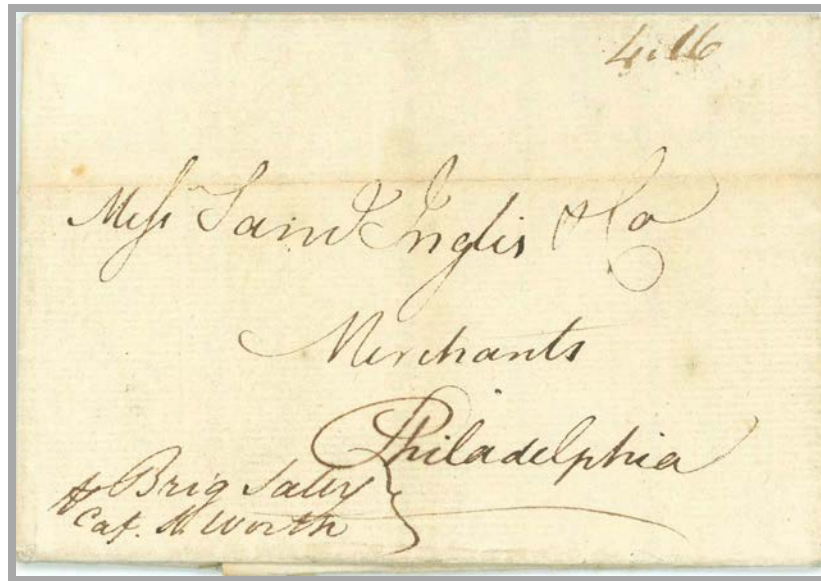 4.16
Messrs Saml Inglis & Co
Merchants
Philadelphia
Brig Sally
Cap. Worth